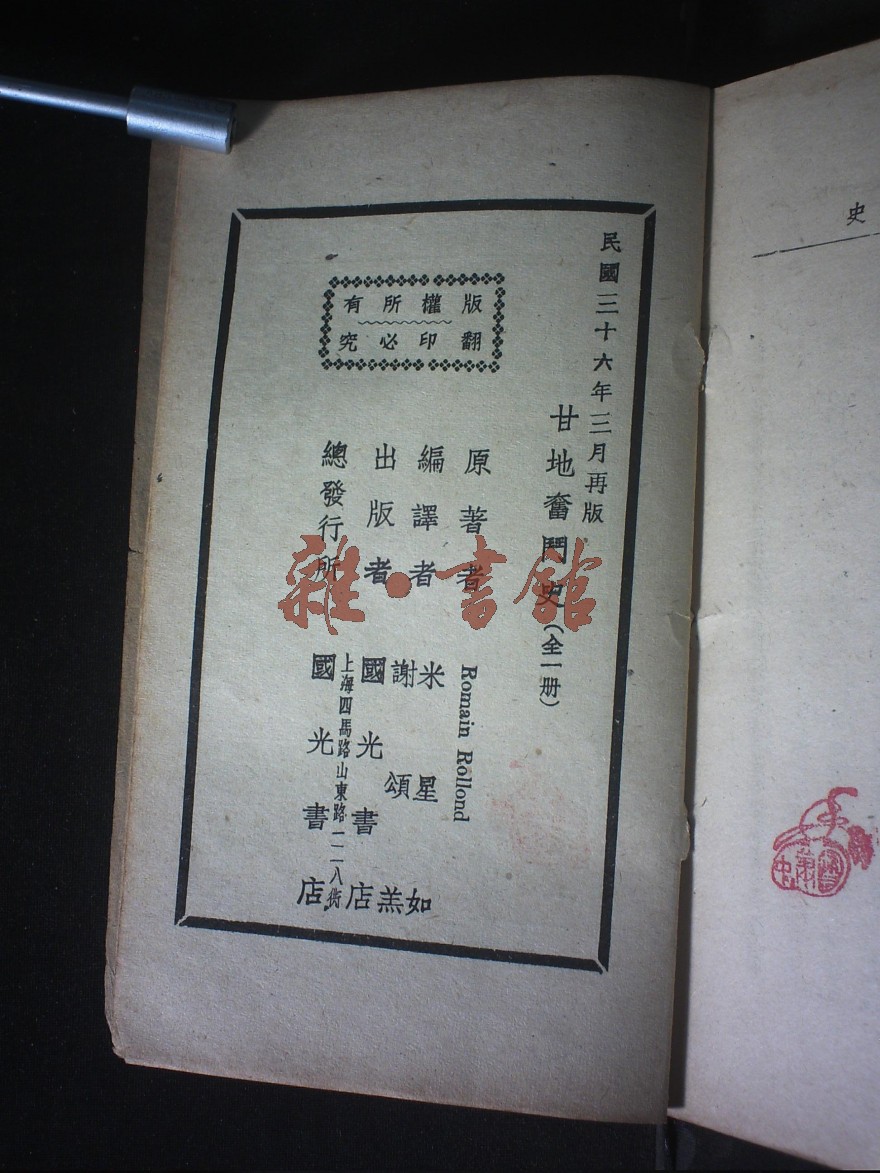 民國三十六年三月再版
甘地奮鬥史(全一册)
原著者 Romain Rollond
編譯者 米星如
謝頌羔
出版者 國光書店
總發行所 國光書店
上海四馬路山東路一二八衖
版權所有
翻印必究
雜·書館
史